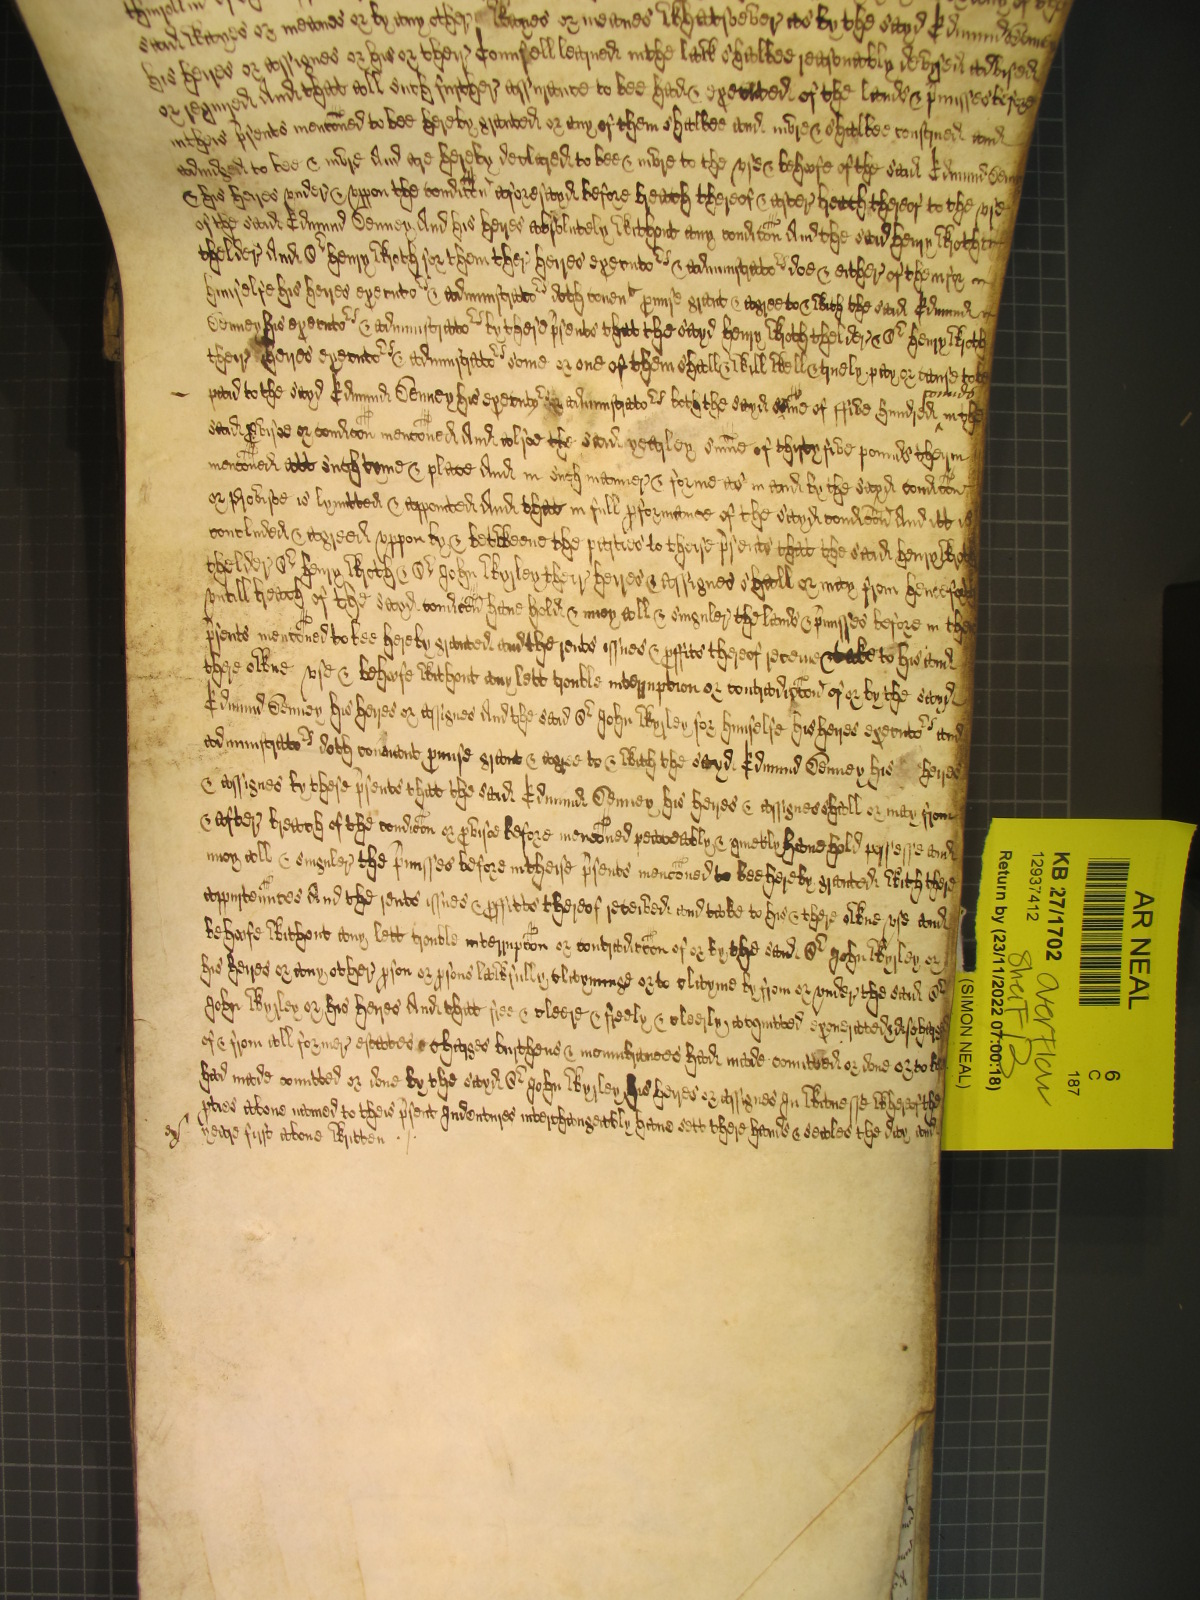 said wayes or meanes or by any other wayes or meanes whatsoever as by the sayd Edmund Denney
his heires or assignes or his or their Counsell learned in the lawe shalbee reasonably devysed advised
or required And that all such further assurance to bee had & executed of the lands & p'misses before
in theis p'sents menc'oned to bee hereby graunted or any of them shalbee and inure & shalbee construed and
adiudged to bee & inure And are hereby declared to bee & inure to the use & behoofe of the said Edmund Denney
& his heyres under & uppon the condic'on aforesayd before breach thereof & after breach thereof to the use
of the said Edmund Denney And his heyres absolutely without any condic'on And the said henry Wroth
thelder And Sr henry Wroth for them their heyres executors & administrators doe & either of them for
himselfe his heyres executors & administrators doth coven't p'mise graunt & agree to & with the said Edmund
Denney his executors & administrators by these p'sents that the sayd henry Wroth thelder & Sr henry Wroth
their heyres executors & administrators some or one of them shall & will well & truely pay or cause to be
paid to the sayd Edmund Denney his executors or administrators both the sayd sume of ffive hundred pounds in the
said p'visoe or condic'on menc'oned And alsoe the said yearley sume of thirty five pounds therin
menc'oned att such tyme & place And in such manner & forme as in and by the sayd condic'on
or p'visoe is lymitted & appointed And that in full p'formance of the sayd condic'on And itt is
concluded & agreed uppon by & betweene the parties to these p'sents that the said henry Wroth
thelder Sr henry Wroth & Sr John Wyrley their heyres & assignes shall or may from henceforth
untill breach of the sayd condic'on have hold & enioy all & singuler the lands & p'misses before in these
p'sents menc'oned to bee hereby graunted and the rents issues & p'ffits thereof receive & take to his and
there owne use & behoofe without any lett trouble interruption or contradicc'on of or by the sayd
Edmund Denney his heyres or assignes And the said Sr John Wyrley for himselfe his heyres executors and
administrators doth covenant p'mise graunt & agree to & with the sayd Edmund Denney his heyres
& assignes by these p'sents that the said Edmund Denney his heyres & assignes shall or may from
& after breach of the condic'on or p'visoe before menc'oned peaceably & quietly have hold possesse and
enioy all & singuler the p'misses before in theise p'sents menc'oned to bee hereby graunted with there
appurten'nces And the rents issues & p'ffitts thereof received and take to his & there owne use and
behoofe without any lett trouble interrupc'on or contradicc'on of or by the said Sr John Wyrley or
his heyres or any other p'son or p'sons lawfully clayminge or to clayme by from or under the said Sr
John Wyrley or his heyres And that free & cleere & freely & cleerly acquitted exonerated & discharged
of & from all former estates charges burthens & incumbrances had made comitted or done or to bee
had made comitted or done by the sayd Sr John Wyrley his heyres or assignes In Witnesse whereof the
p'ties above named to theis p'sent Indentures interchangeably have sett there hands & seales the day and
yeare first above written
AR NEAL
6
C
187
KB 27/1702 overflow
12937412
Sheet 12
Return by (23/11/2022 07:00:18)
(SIMON NEAL)